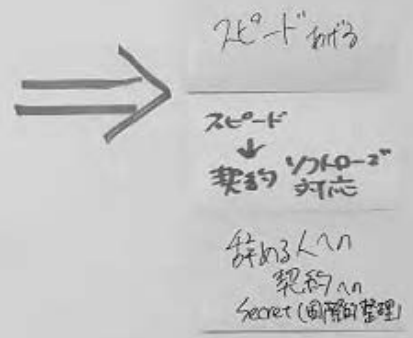 スピードあげる
スピード
↓
契約 ソフトローズ
対応
辞める人への
契約への
Secret(国際的整理)